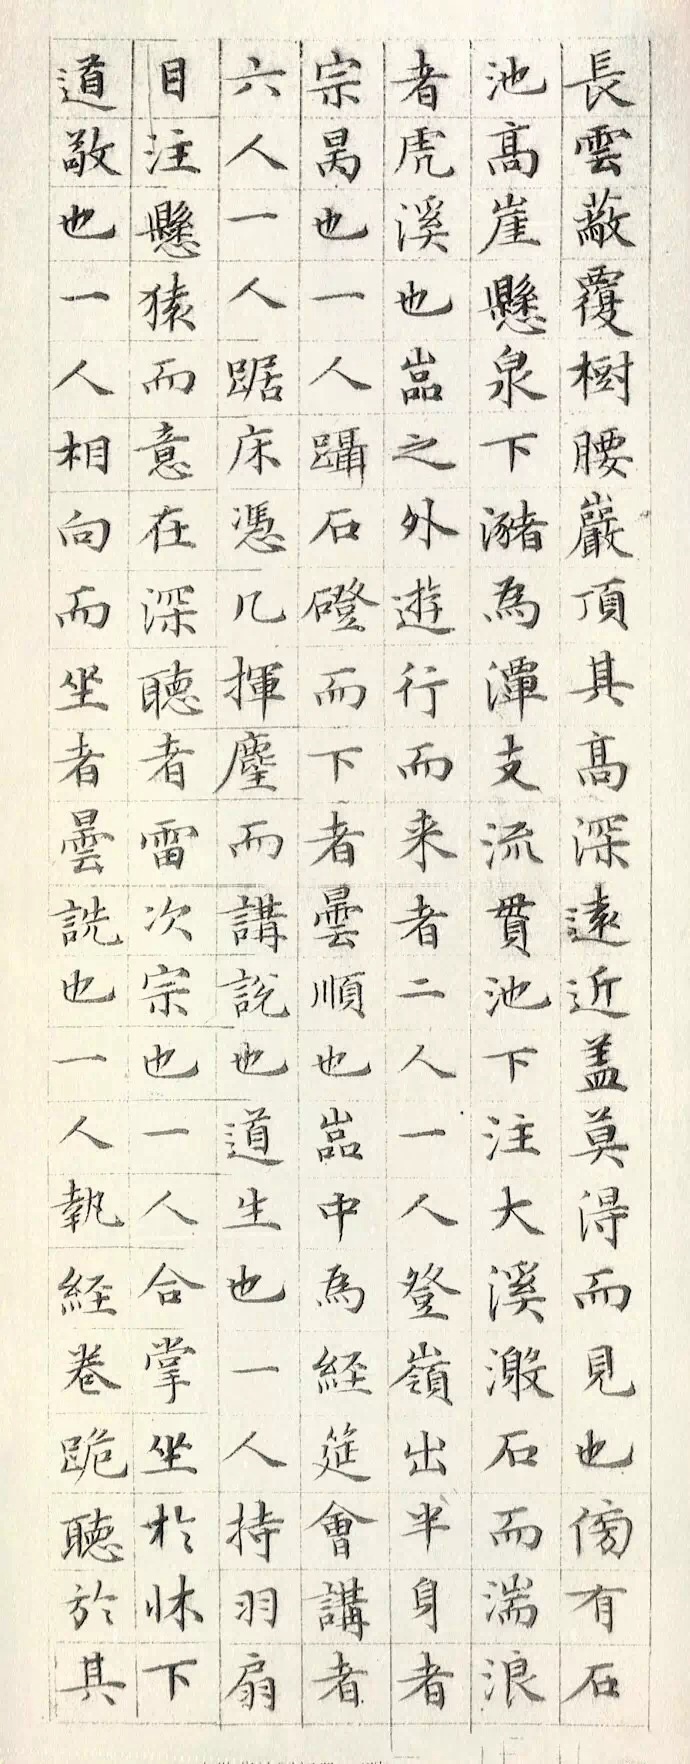 長雲蔽覆樹腰巖頂其高深遠近蓋莫得而見也傍有石
池高崖懸泉下瀦為潭支流貫池下注大溪激石而湍浪
者虎溪也嵓之外遊行而来者二人一人登嶺出半身者
宗昺也一人躡石磴而下者曇順也嵓中為経筵會講者
六人一人踞床憑几揮麈而講說也道生也一人持羽扇
目注懸猿而意在深聽者雷次宗也一人合掌坐於牀下
道敬也一人相向而坐者曇詵也一人執経卷跪聽於其